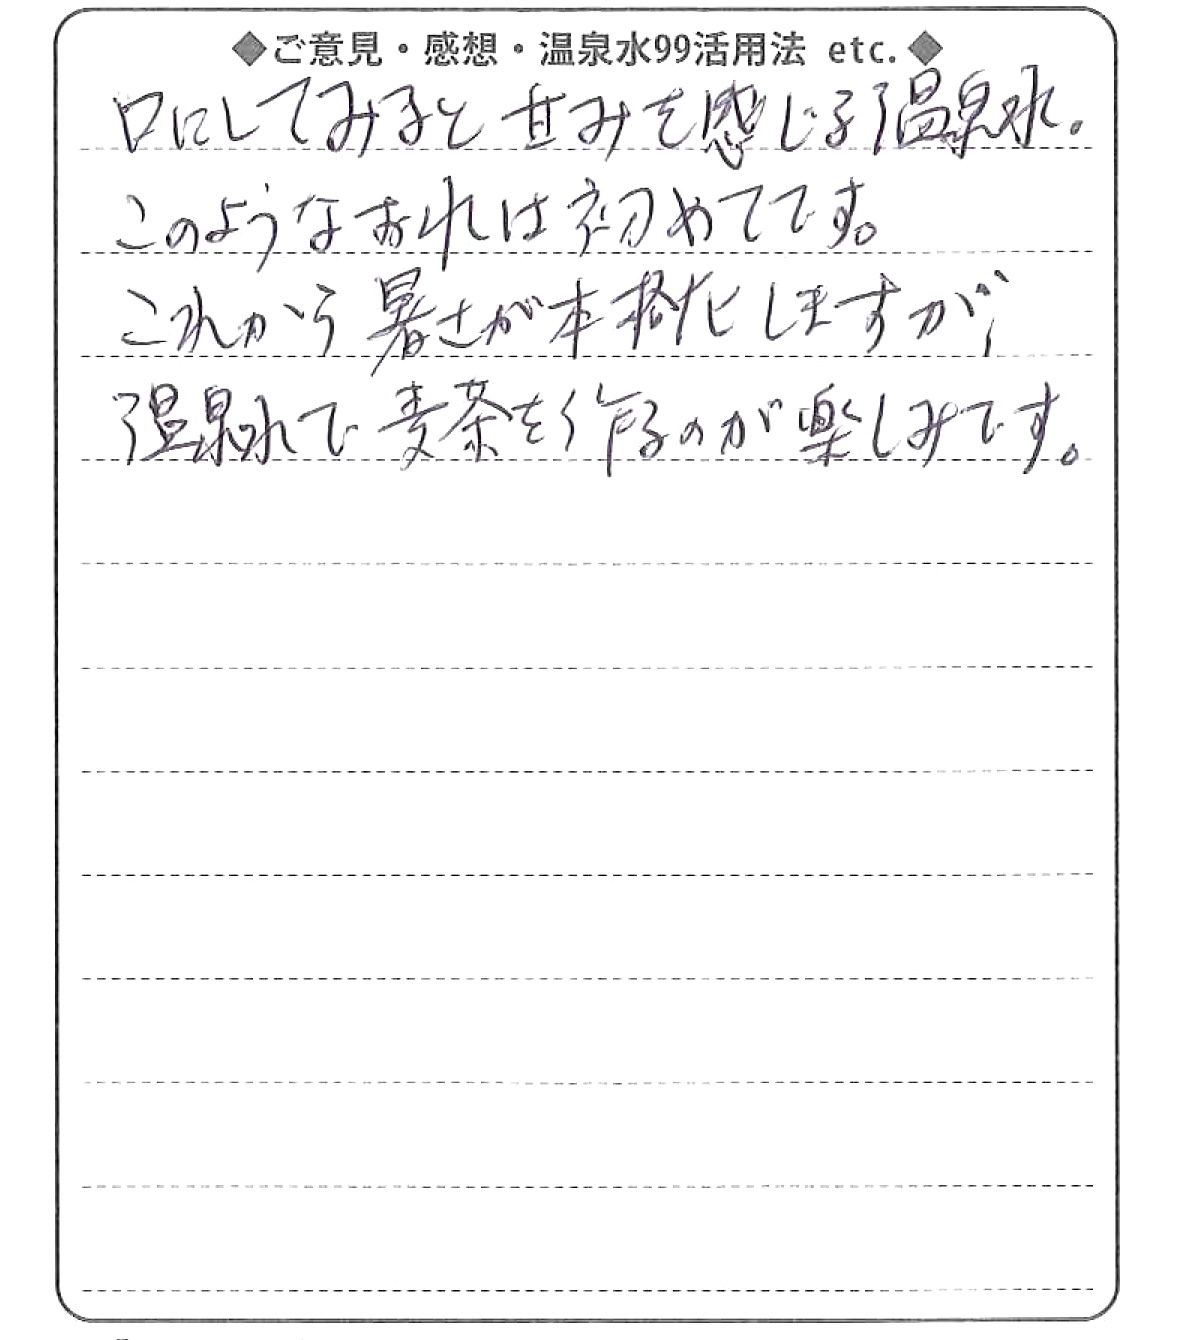 ◆ご意見・感想・温泉水99活用法 etc.◆
口にしてみると甘みを感じる温泉水。
このようなお水は初めてです。
これから暑さが本格化しますが、
温泉水で麦茶を作るのが楽しみです。